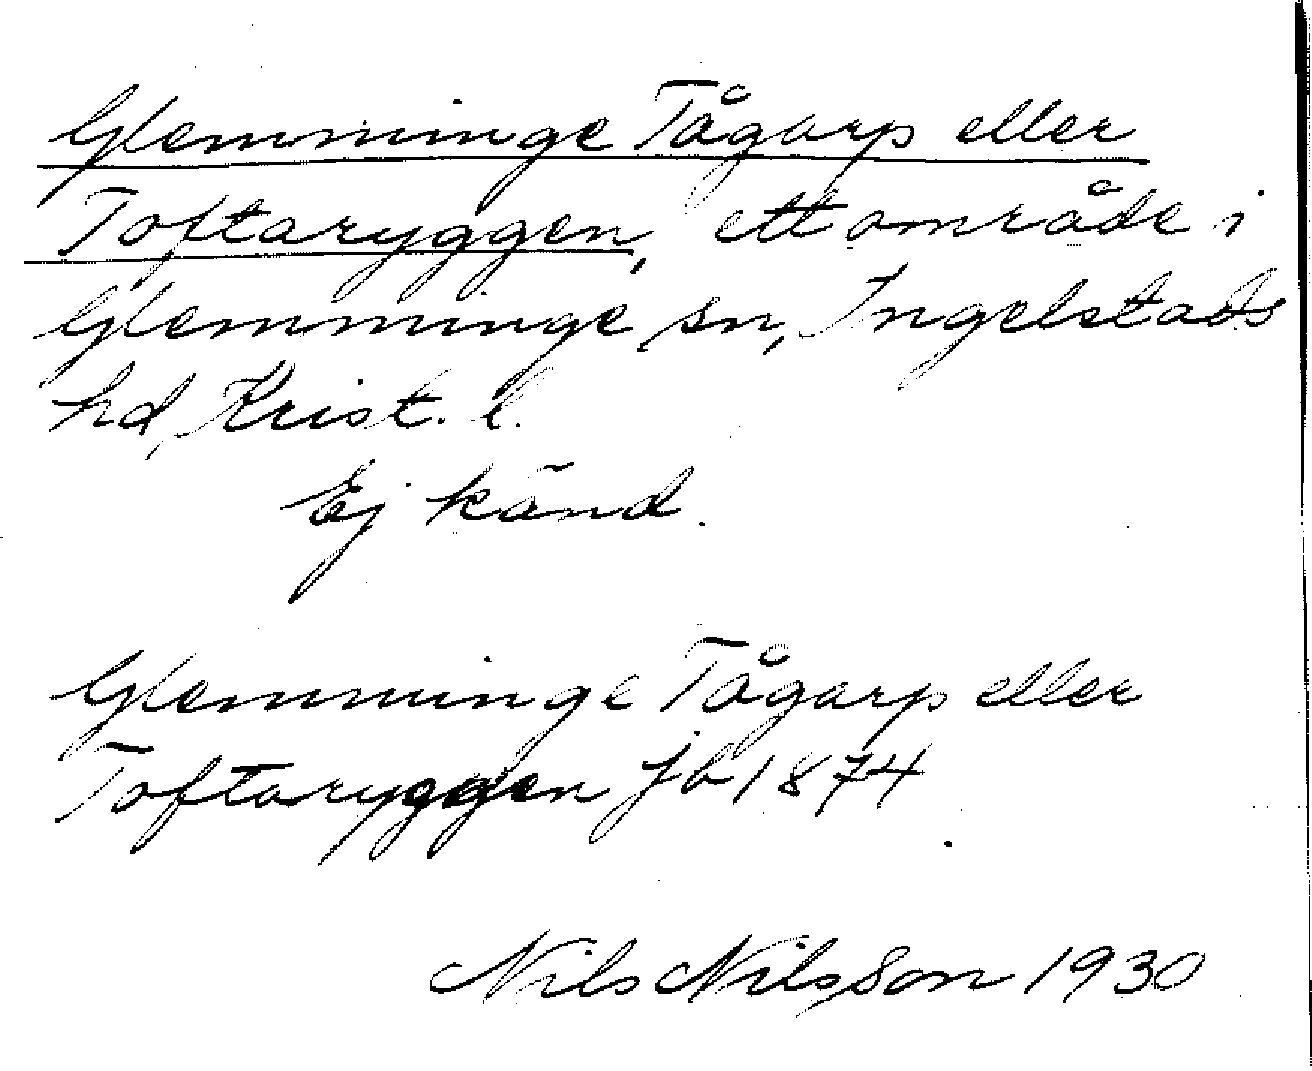 Glemminge Tågarp eller
Toftaryggen, ett område i
Glemminge sn, Ingelstads
hd, Krist. l.
Ej känd.
Glemminge Tågarp eller
Toftaryggen Jb 1874
Nils Nilsson 1930